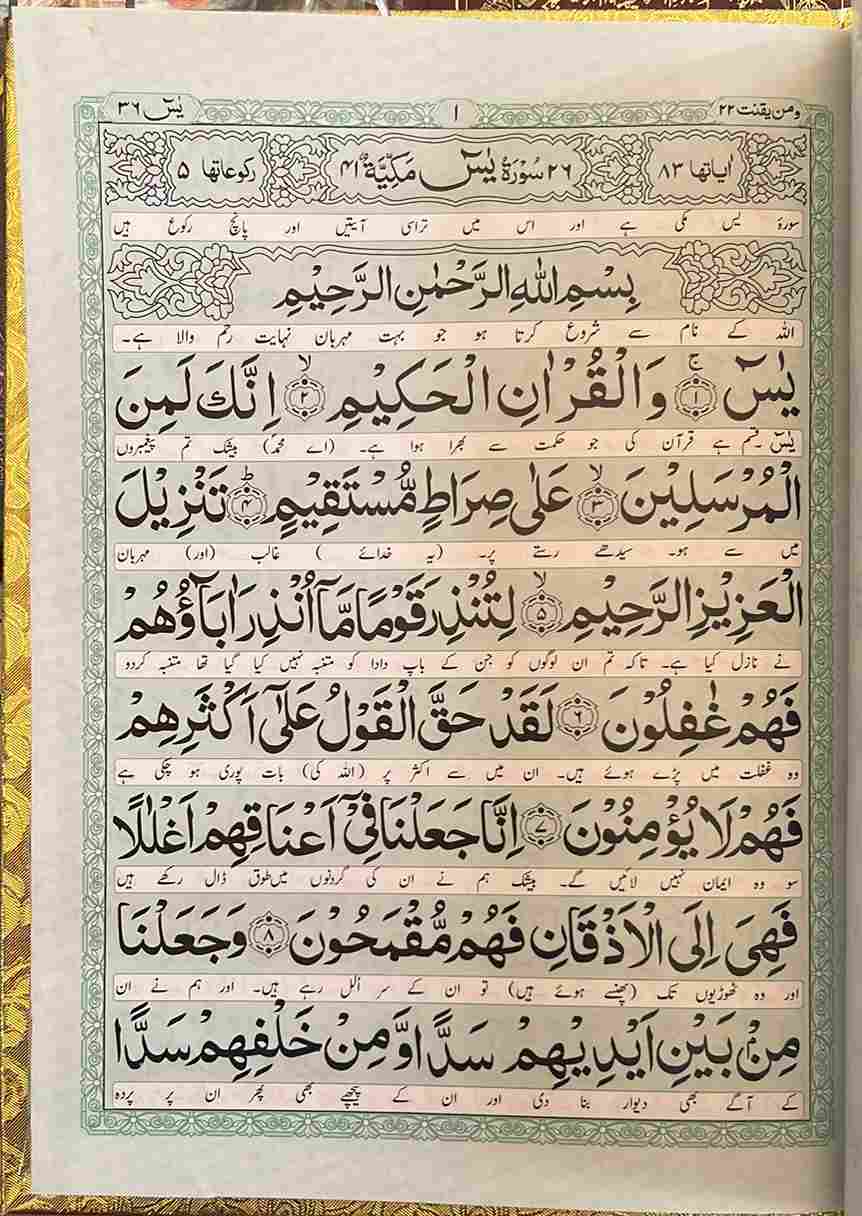 ومن یقنت ۲۲ ۱ یٰسٓ ۳۶
اٰیاتها ۸۳ ۳۶ سُوْرَةُ یٰسٓ مَكِّیَّةٌ ۴۱ رکوعاتها ۵
سورۂ یٰس مکی ہے اور اس میں تراسی آیتیں اور پانچ رکوع ہیں
بِسْمِ اللّٰهِ الرَّحْمٰنِ الرَّحِیْمِ
اللہ کے نام سے شروع کرتا ہو جو بہت مہربان نہایت رحم والا ہے۔
یٰسٓ ۚ﴿۱﴾ وَالْقُرْاٰنِ الْحَكِیْمِ ۙ﴿۲﴾ اِنَّكَ لَمِنَ
یٰسٓ۔ قسم ہے قرآن کی جو حکمت سے بھرا ہوا ہے۔ (اے محمدؐ) بیشک تم پیغمبروں
الْمُرْسَلِیْنَ ۙ﴿۳﴾ عَلٰی صِرَاطٍ مُّسْتَقِیْمٍ ؕ﴿۴﴾ تَنْزِیْلَ
میں سے ہو۔ سیدھے رستے پر۔ (یہ خدائے ) غالب (اور) مہربان
الْعَزِیْزِ الرَّحِیْمِ ۙ﴿۵﴾ لِتُنْذِرَ قَوْمًا مَّاۤ اُنْذِرَ اٰبَآؤُهُمْ
نے نازل کیا ہے۔ تاکہ تم ان لوگوں کو جن کے باپ دادا کو متنبہ نہیں کیا گیا تھا متنبہ کردو
فَهُمْ غٰفِلُوْنَ ﴿۶﴾ لَقَدْ حَقَّ الْقَوْلُ عَلٰۤی اَكْثَرِهِمْ
وہ غفلت میں پڑے ہوئے ہیں۔ ان میں سے اکثر پر (اللہ کی) بات پوری ہو چکی ہے
فَهُمْ لَا یُؤْمِنُوْنَ ﴿۷﴾ اِنَّا جَعَلْنَا فِیْۤ اَعْنَاقِهِمْ اَغْلٰلًا
سو وہ ایمان نہیں لائیں گے۔ بیشک ہم نے ان کی گردنوں میں طوق ڈال رکھے ہیں
فَهِیَ اِلَی الْاَذْقَانِ فَهُمْ مُّقْمَحُوْنَ ﴿۸﴾ وَجَعَلْنَا
اور وہ ٹھوڑیوں تک (پھنسے ہوئے ہیں) تو ان کے سر الل رہے ہیں۔ اور ہم نے ان
مِنْۢ بَیْنِ اَیْدِیْهِمْ سَدًّا وَّمِنْ خَلْفِهِمْ سَدًّا
کے آگے بھی دیوار بنا دی اور ان کے پیچھے بھی پھر ان پر پردہ